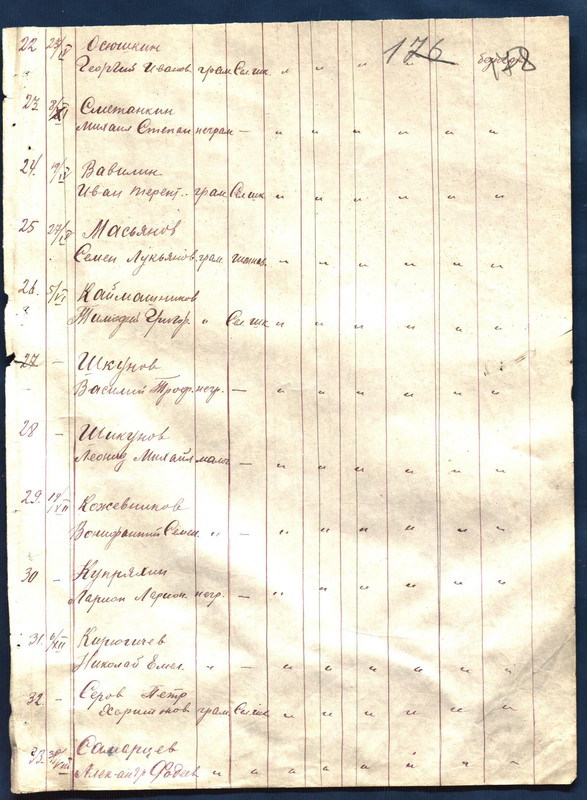 176 178
22 Осюшкин
Георгий Иванов. грам. Сел.шк. " " " "
23. Сметанкин
Михаил Степан неграм — " " " " " " "
24. Вавилин
Иван Терент.. грам. Сел.шк " " " " " " "
25 27/IX Масьянов
Семен Лукьянов. грам. " " " " " " "
26. 5/VI Каймашников
Тимофей Григор. " Сел.шк " " " " " " "
27 — Шкунов
Василий Троф. негр. — " " " " " " "
28 — Шикунов
Леонид Михайл малог — " " " " " " "
29. 19/XII Кожевников
Вонифантий Семен. " — " " " " " " "
30 — Купряхин
Ларион Ларион. негр. — " " " " " " "
31. 6/XII Кирюгичев
Николай Емел. " — " " " " " " "
32. — Серов Петр
Харитонов грам. Сел.шк " " " " " " "
33. 30/VIII Самарцев
Александр Фадеев " " " " " " " "